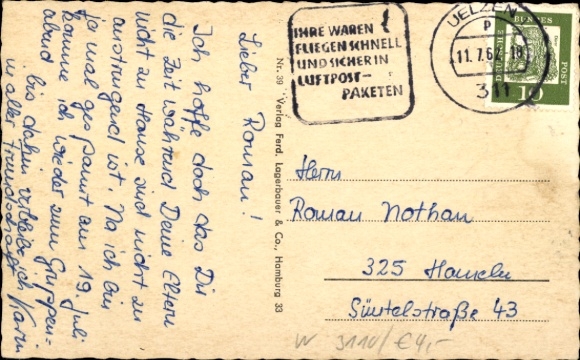 Lieber Roman!
Ich hoffe doch das Du
die Zeit während Deine Eltern
nicht zu Hause sind nicht zu
anstrengend ist. Na ich bin
ja mal gespannt am 19. Juli
komme ich wieder zum Gruppen-
abend
bis dahin verbleibe ich
in alter Freundschaft Karin
Nr. 39 Verlag Ferd. Lagerbauer & Co., Hamburg 33
IHRE WAREN
FLIEGEN SCHNELL
UND SICHER IN
LUFTPOST-
PAKETEN
UELZEN
P
11.7.67-18
311
DEUTSCHE
BUNDES
POST
10
Herrn
Roman Nothan
325 Hameln
Süntelstraße 43
W 3110/ €4,-